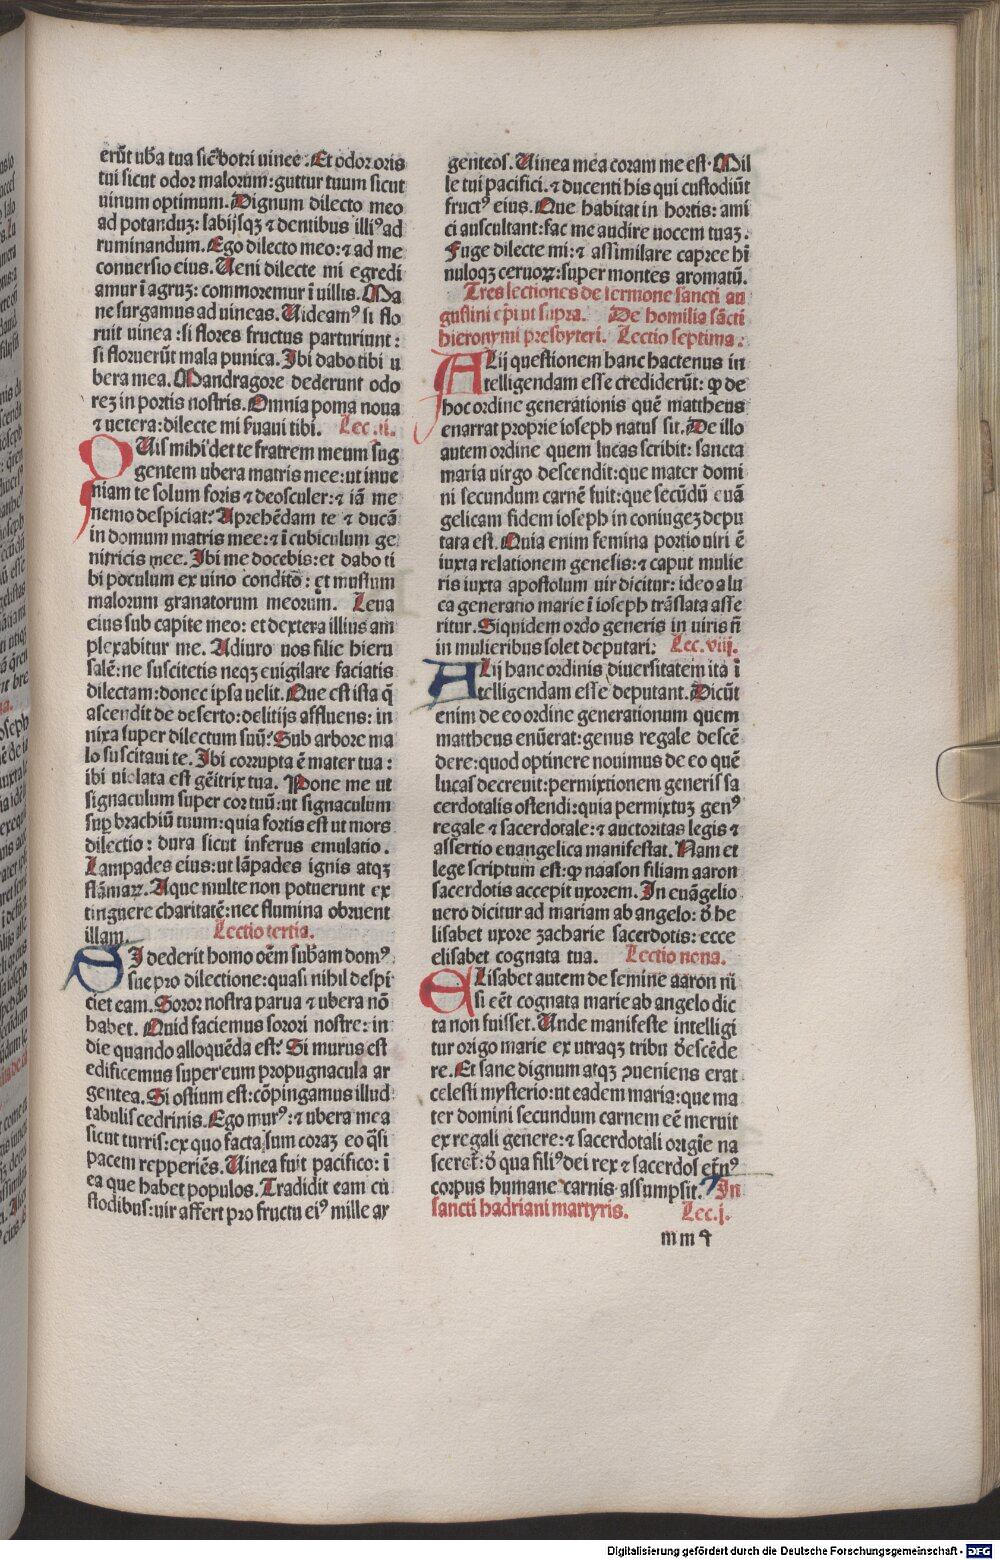 erūt vb̄a tua sic̄ botri vinee. Et odor oris
tui sicut odor malorum: guttur tuum sicut
vinum optimum. Dignum dilecto meo
ad potanduꝫ: labijsqꝫ ⁊ dentibus illiꝰ ad
ruminandum. Ego dilecto meo: ⁊ ad me
conuersio eius. Ueni dilecte mi egredi
amur ī agruꝫ: commoremur ī villis. Ma
ne surgamus ad vineas. Uideamꝰ si flo
ruit vinea: si flores fructus parturiunt:
si floruerūt mala punica. Ibi dabo tibi v
bera mea. Mandragore dederunt odo
reꝫ in portis nostris. Omnia poma noua
⁊ vetera: dilecte mi seruaui tibi. Lec. ij.
QUis mihi det te fratrem meum sug
gentem vbera matris mee: vt inue
niam te solum foris ⁊ deosculer: ⁊ iā me
nemo despiciat? Aprehēdam te ⁊ ducā
in domum matris mee: ⁊ ī cubiculum ge
nitricis mee. Ibi me docebis: et dabo ti
bi poculum ex vino condito: et mustum
malorum granatorum meorum. Leua
eius sub capite meo: et dextera illius am
plexabitur me. Adiuro vos filie hieru
salē: ne suscitetis neqꝫ euigilare faciatis
dilectam: donec ipsa velit. Que est ista q̄
ascendit de deserto: delitijs affluens: in
nixa super dilectum suū? Sub arbore ma
lo suscitaui te. Ibi corrupta ē mater tua:
ibi violata est gēitrix tua. Pone me vt
signaculum super cor tuū: vt signaculum
suꝑ brachiū tuum: quia fortis est vt mors
dilectio: dura sicut inferus emulatio.
Lampades eius: vt lāpades ignis atqꝫ
flāmaꝝ. Aque multe non potuerunt ex
tinguere charitatē: nec flumina obruent
illam. Lectio tertia.
SI dederit homo oēm subam domꝰ
sue pro dilectione: quasi nihil despi
ciet eam. Soror nostra parua ⁊ vbera nō
habet. Quid faciemus sorori nostre: in
die quando alloquēda est? Si murus est
edificemus super eum propugnacula ar
gentea. Si ostium est: cōpingamus illud
tabulis cedrinis. Ego murꝰ: ⁊ vbera mea
sicut turris: ex quo facta sum coraꝫ eo q̄si
pacem repperiēs. Uinea fuit pacifico: ī
ea que habet populos. Tradidit eam cu
stodibus: vir affert pro fructu eiꝰ mille ar
genteos. Uinea mea coram me est. Mil
le tui pacifici. ⁊ ducenti his qui custodiūt
fructꝰ eius. Que habitat in hortis: ami
ci auscultant: fac me audire vocem tuaꝫ.
Fuge dilecte mi: ⁊ assimilare capree hī
nuloqꝫ ceruoꝝ: super montes aromatū.
Tres lectiones de sermone sancti au
gustini ep̄i vt supra. De homilia sācti
hieronymi presbyteri. Lectio septima.
ALij questionem hanc hactenus in
telligendam esse crediderūt: ꝙ de
hoc ordine generationis quē mattheus
enarrat proprie ioseph natus sit. De illo
autem ordine quem lucas scribit: sancta
maria virgo descendit: que mater domi
ni secundum carnē fuit: que secūdū euā
gelicam fidem ioseph in coniugeꝫ depu
tata est. Quia enim femina portio viri ē
iuxta relationem genesis: ⁊ caput mulie
ris iuxta apostolum vir dicitur: ideo a lu
ca generatio marie ī ioseph trāslata asse
ritur. Siquidem ordo generis in viris n̄
in mulieribus solet deputari: Lec. viij.
ALij hanc ordinis diuersitatem ita ī
telligendam esse deputant. Dicūt
enim de eo ordine generationum quem
mattheus enūerat: genus regale descē
dere: quod optinere nouimus de eo quē
lucas decreuit: permixtionem generis sa
cerdotalis ostendi: quia permixtuꝫ genꝰ
regale ⁊ sacerdotale: ⁊ auctoritas legis ⁊
assertio euangelica manifestat. Nam et
lege scriptum est: ꝙ naason filiam aaron
sacerdotis accepit vxorem. In euāgelio
vero dicitur ad mariam ab angelo: d̄ he
lisabet vxore zacharie sacerdotis: ecce
elisabet cognata tua. Lectio nona.
ELisabet autem de semine aaron ni
si eēt cognata marie ab angelo dic
ta non fuisset. Unde manifeste intelligi
tur origo marie ex vtraqꝫ tribu d̄scēde
re. Et sane dignum atqꝫ ꝯueniens erat
celesti mysterio: vt eadem maria: que ma
ter domini secundum carnem eē meruit
ex regali genere: ⁊ sacerdotali origīe na
sceret̄: d̄ qua filiꝰ dei rex ⁊ sacerdos et̄nꝰ
corpus humane carnis assumpsit. In
sancti hadriani martyris. Lec. j.
mm ꝗ
Digitalisierung gefördert durch die Deutsche Forschungsgemeinschaft - DFG